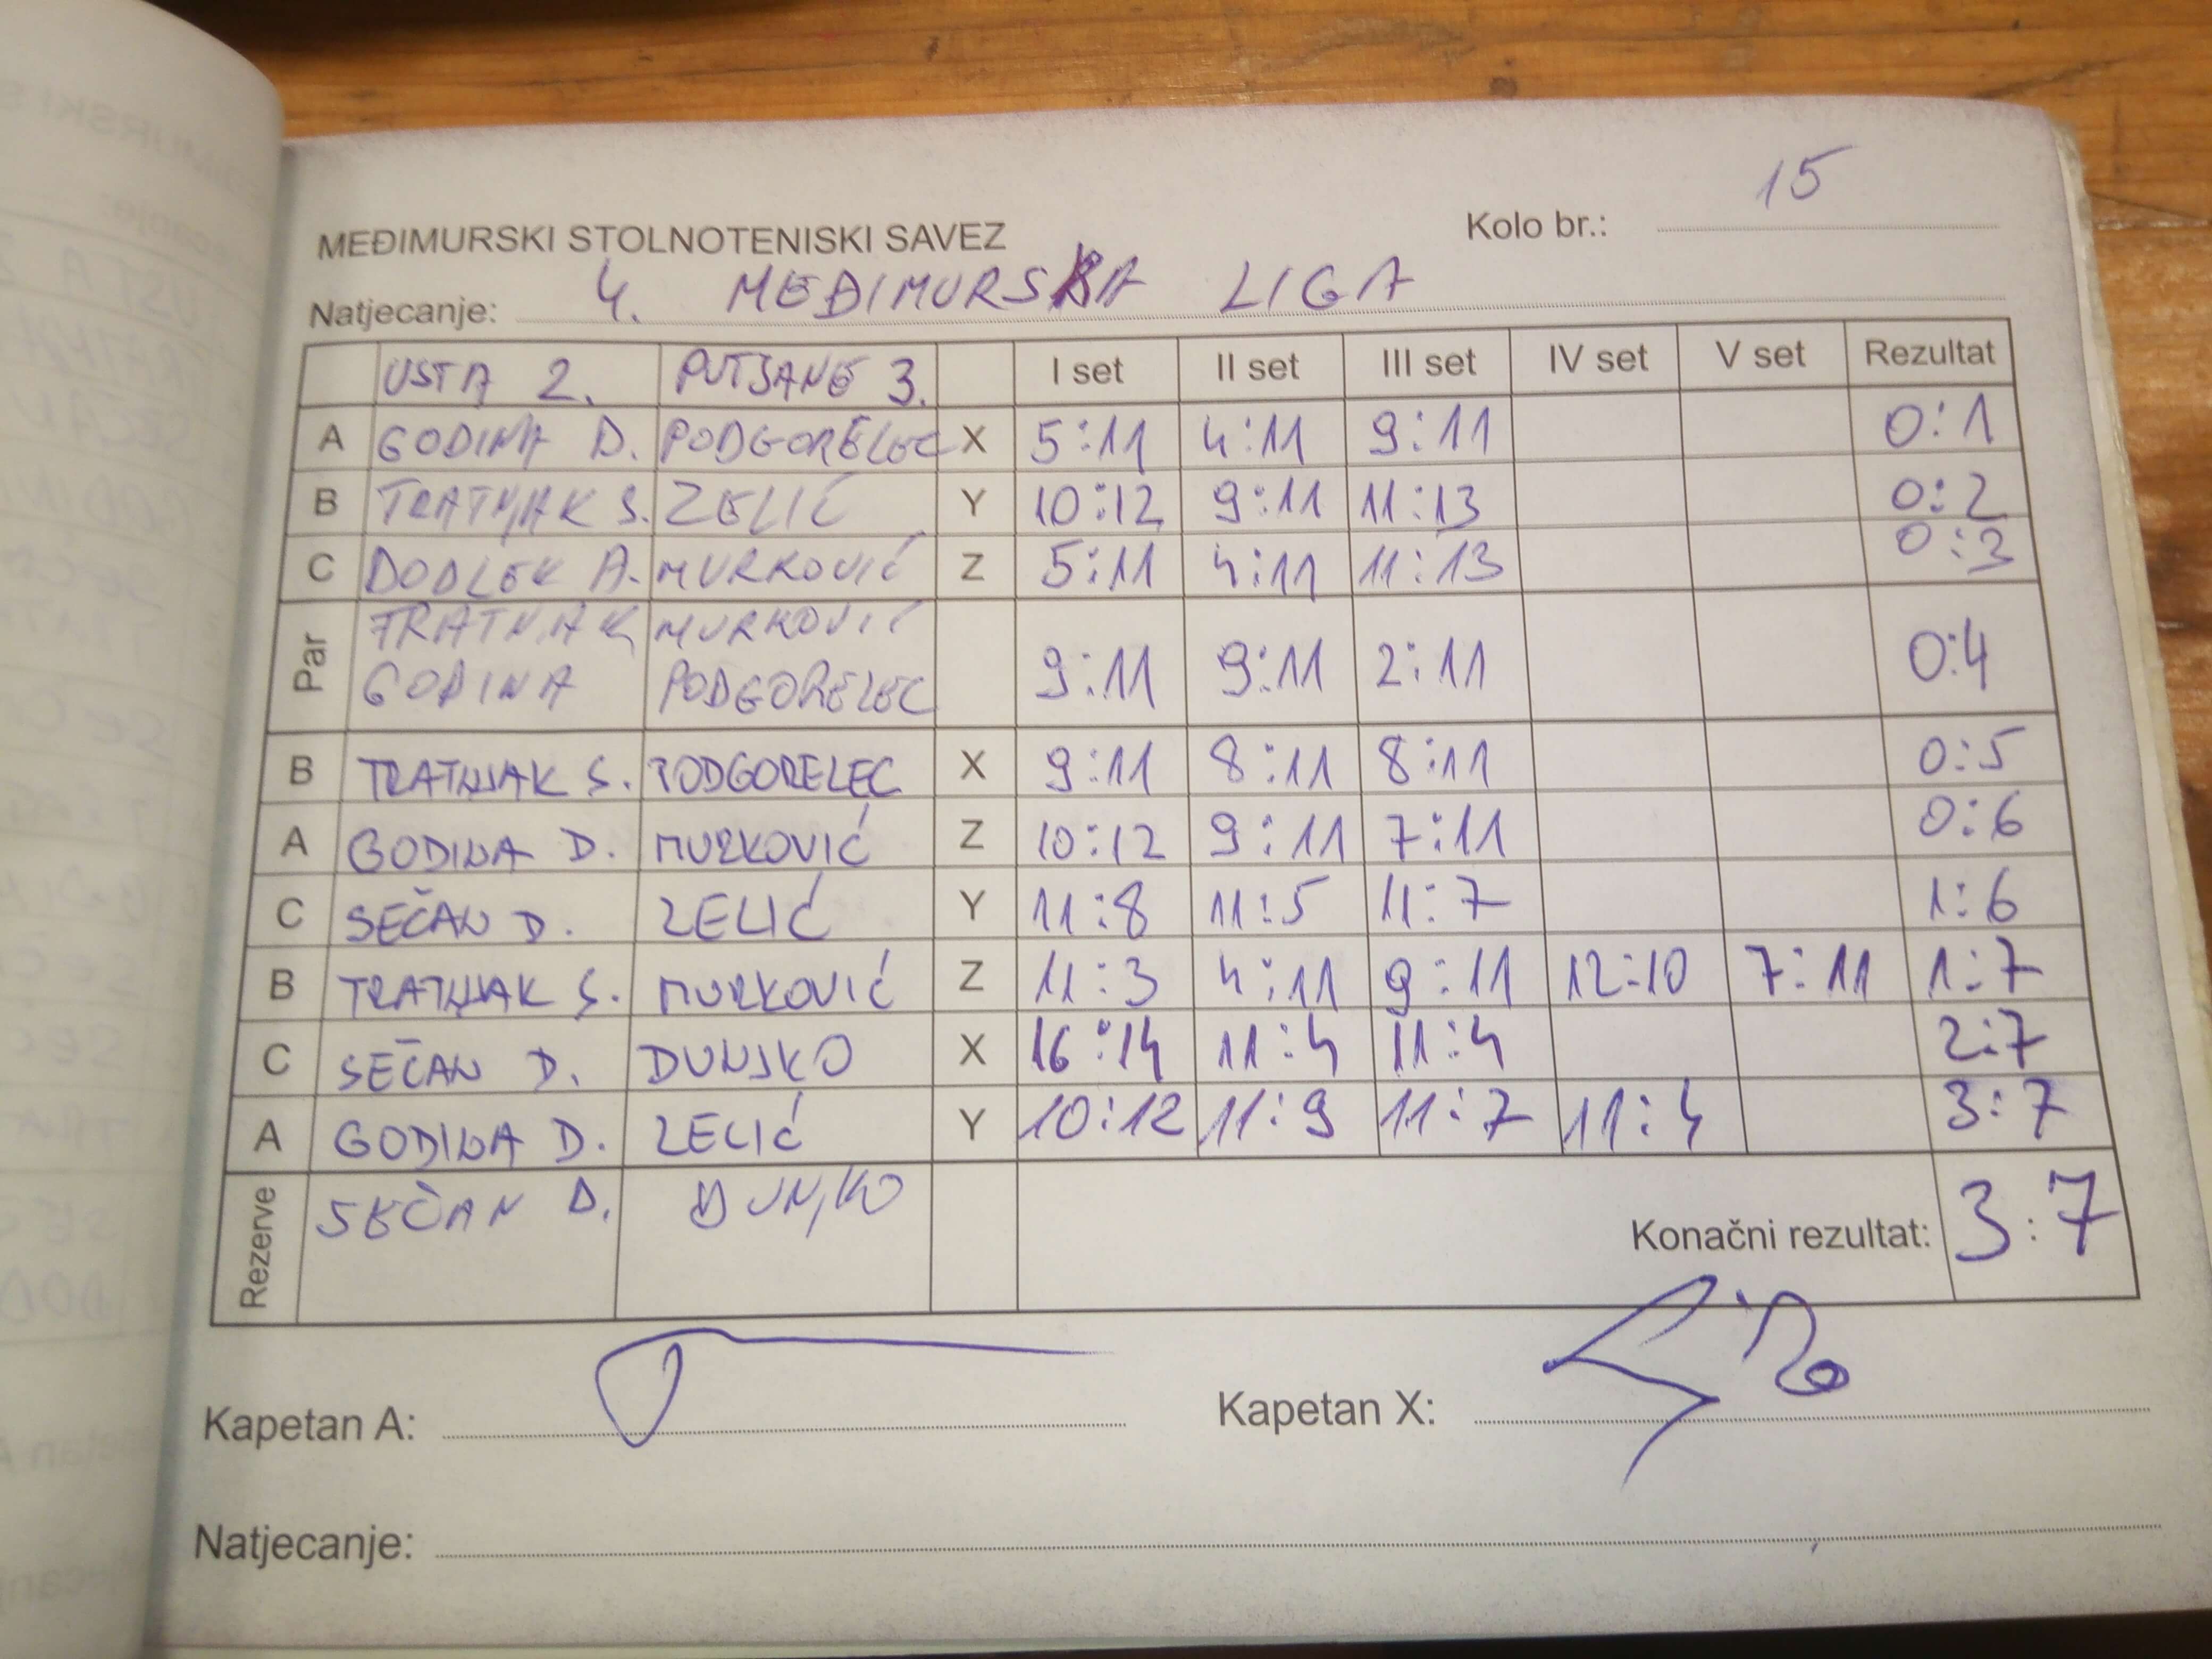 Kolo br.: 15
MEĐIMURSKI STOLNOTENISKI SAVEZ
Natjecanje: 4. MEĐIMURSKA LIGA
USTA 2. PUTJANE 3. I set II set III set IV set V set Rezultat
A GODINA D. PODGORELEC X 5:11 4:11 9:11 0:1
B TRATNJAK S. ZELIĆ Y 10:12 9:11 11:13 0:2
C DODLEK A. MURKOVIĆ Z 5:11 4:11 11:13 0:3
Par TRATNJAK MURKOVIĆ
GODINA PODGORELEC 9:11 9:11 2:11 0:4
B TRATNJAK S. PODGORELEC X 9:11 8:11 8:11 0:5
A GODINA D. MURKOVIĆ Z 10:12 9:11 7:11 0:6
C SEČAN D. ZELIĆ Y 11:8 11:5 11:7 1:6
B TRATNJAK S. MURKOVIĆ Z 11:3 4:11 9:11 12:10 7:11 1:7
C SEČAN D. DUNJKO X 16:14 11:4 11:4 2:7
A GODINA D. ZELIĆ Y 10:12 11:9 11:7 11:4 3:7
Rezerve SEČAN D. DUNJKO
Konačni rezultat: 3:7
Kapetan A: Kapetan X:
Natjecanje: